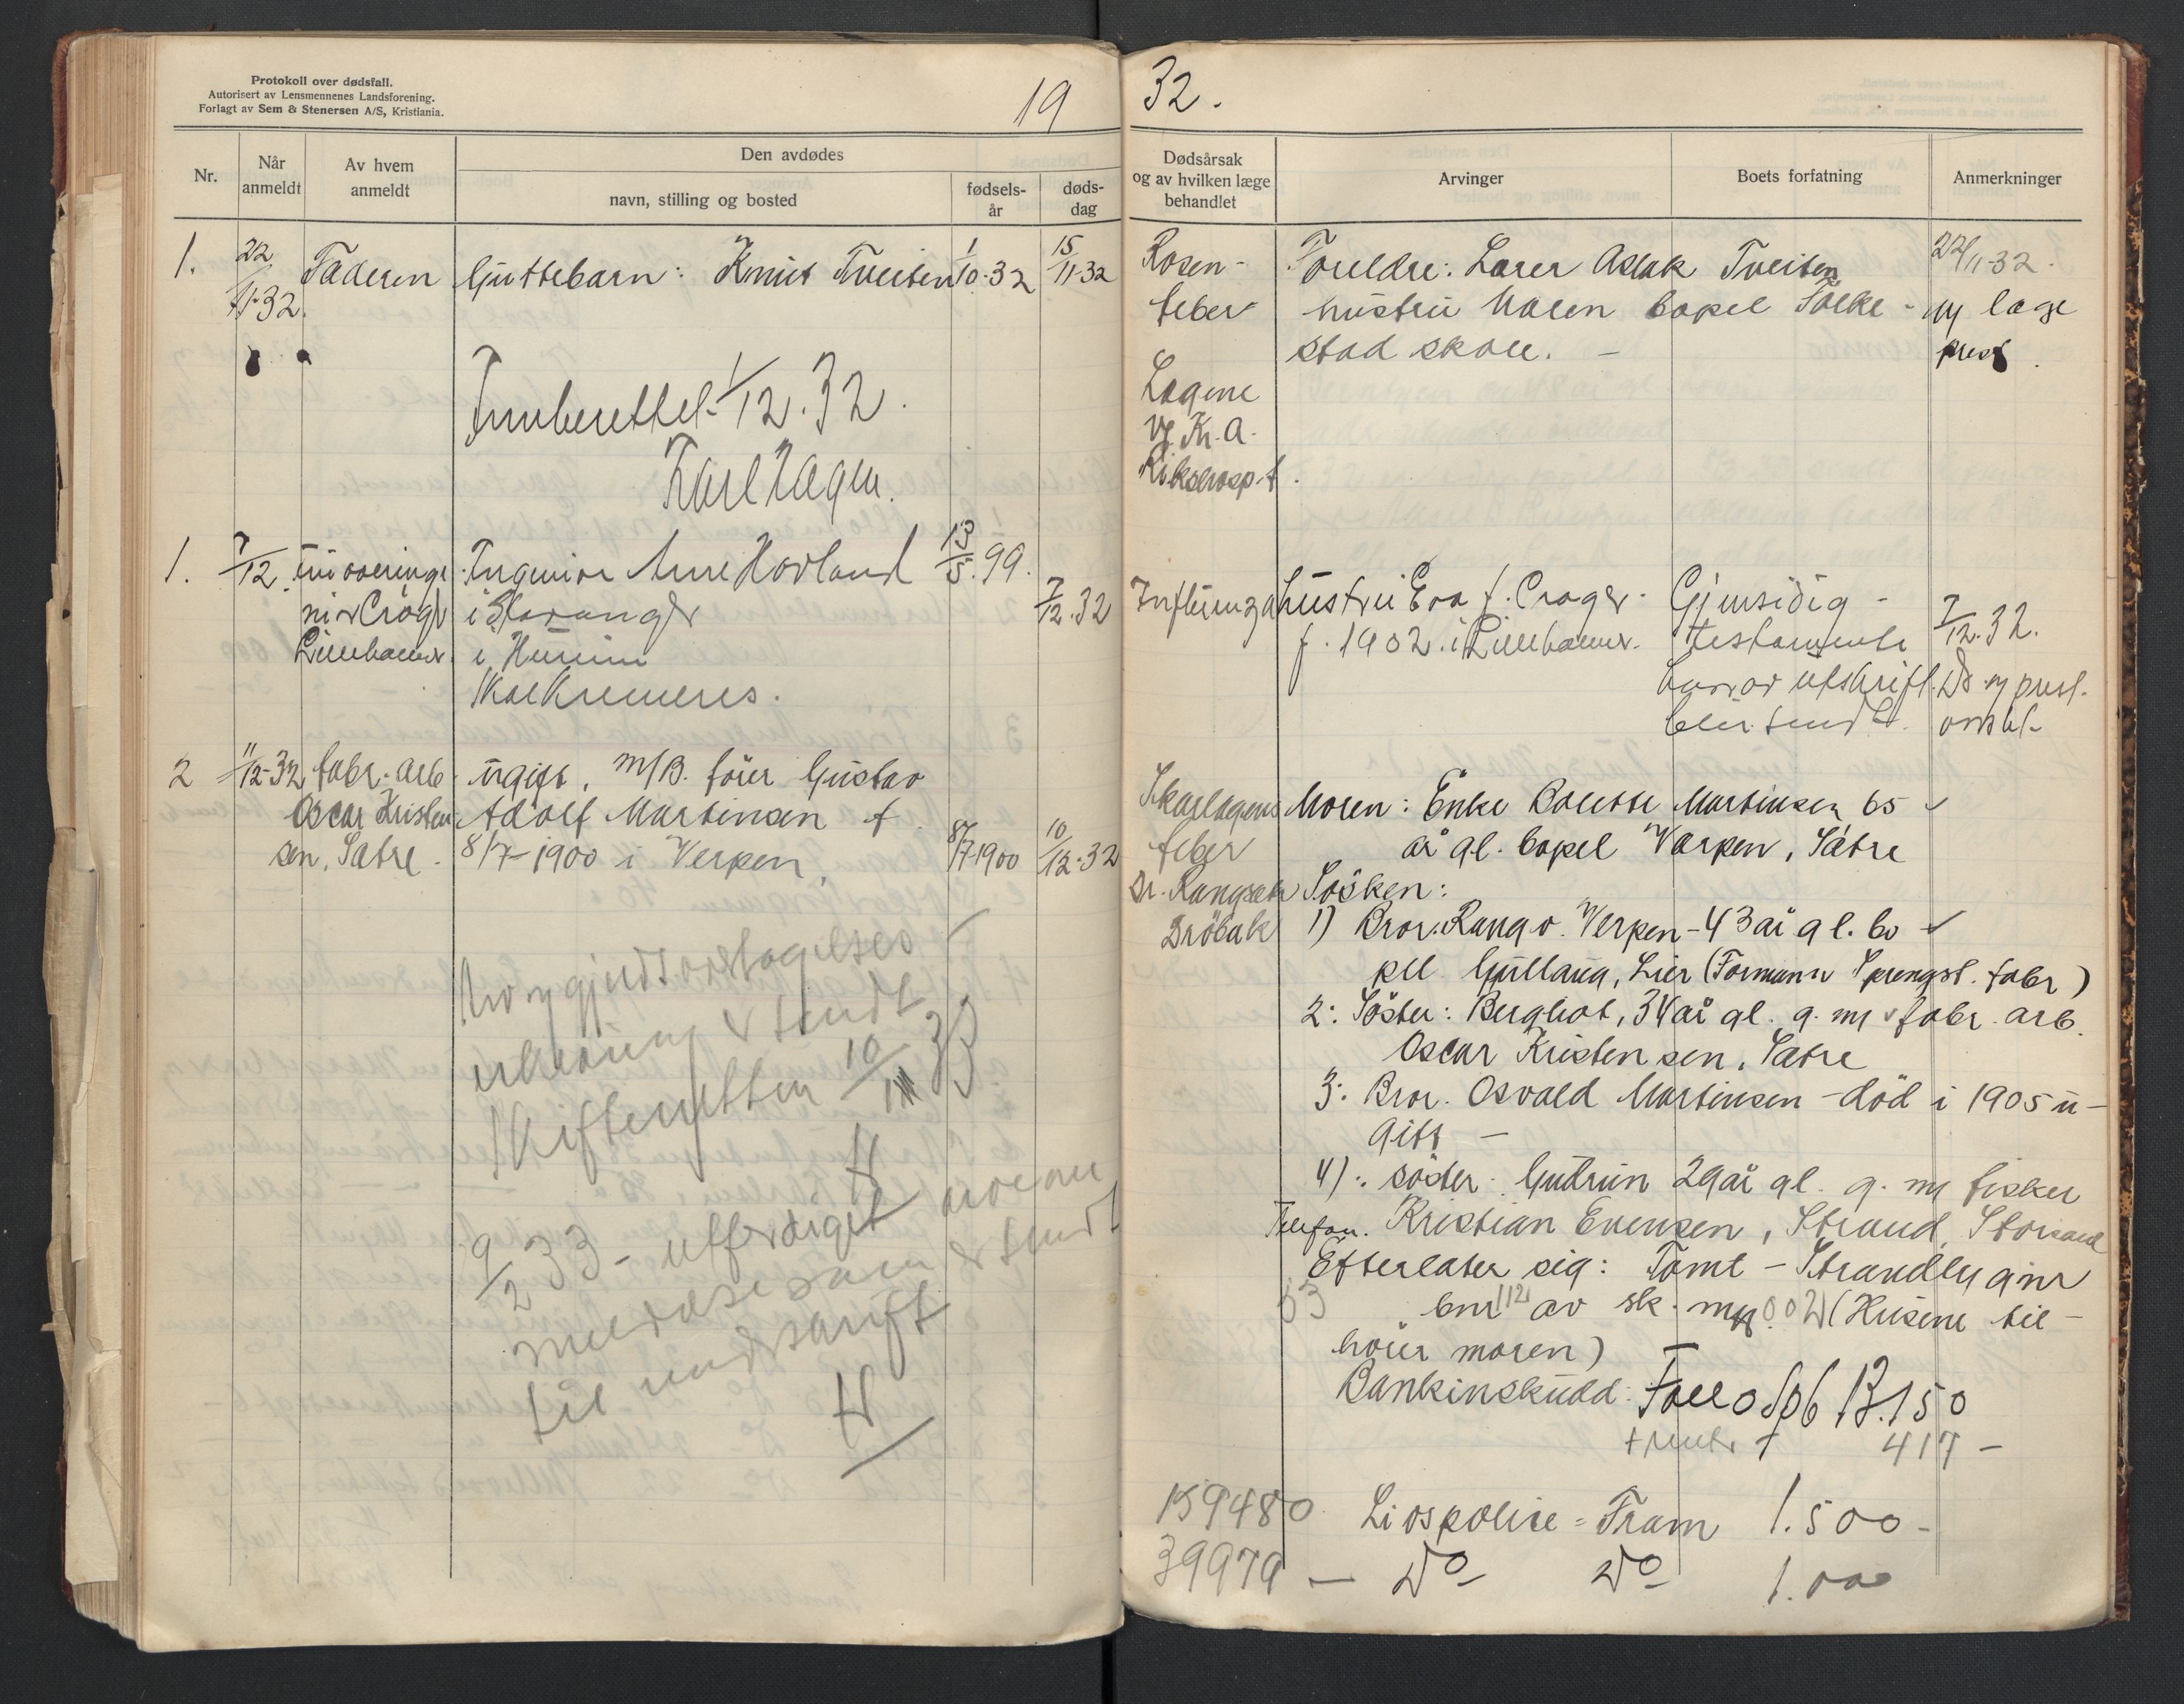 Protokoll over dødsfall.
Autorisert av Lensmennenes Landsforening.
Forlagt av Sem & Stenersen A/S, Kristiania.
19
Nr.
Når anmeldt
Av hvem anmeldt
Den avdødes
navn, stilling og bosted
fødsels-år
døds-dag
1. 22/11-32. Faderen Guttebarn: Knut Tveiten 1/10-32 15/11-32
Innberettet 1/12.32.
Karl Hagen.
1. 7/12. Ingeniør Arne Hovland 13/5.99.
i Stavanger 7/12.32
Lillehamer. i Hurum
2 11/12-32 fabr. arb. ugift, M/B. fører Gustav
Oscar Kristen Adolf Martinsen f.
sen, Sætre. 8/7-1900 i Verpen. 8/7-1900 10/12-32
erklæring & sendt
Skifteretten 10/1 33
H
9/2 33 - utferdiget
til underskrift
H
32.
Dødsårsak
og av hvilken læge
behandlet
Arvinger
Boets forfatning
Anmerkninger
Rosen- Foreldre: Lærer Aslak Tveiten 22/11-32.
feber hustru Maren bopel Følke- m læge
stad skole. - prest.
Lægene
v/ K. A.
Rikshosp-t.
Influenza hustru Eva f. Crøger. Gjensidig - 7/12.32.
f. 1902. i Lillehamer. testamente
hvorav utskrift. Do. m prest.
blir sendt.
Skarlagens Moren: Enke Bolette Martinsen 65
feber år gl. bopelVærpen, Sætre
Dr. Rangsæter Søsken:
Drøbak 1) Bror: Rangv. Verpen - 43 år gl. bo
pel Gullaug, Lier (Formann Sprengst. fabr)
2: Søster: Bergliot, 34 år gl. g. m fabr. arb.
Oscar Kristensen, Sætre
3: Bror. Osvald Martinsen - död i 1905 u-
gift -
4): søster: Gudrun 29 år gl. g. m fisker
Telefon. Kristian Evensen, Strand, Storsand
Efterlater sig: Tomt - Strandly gnr
53 bnr 112 av sk. m 0.02 (Husene til-
hører moren)
Bankinskudd: Follo Spb 13.150
+ renter 417 -
159480 Livspolise = Fram 1.500-
39979 - Do Do 1.000